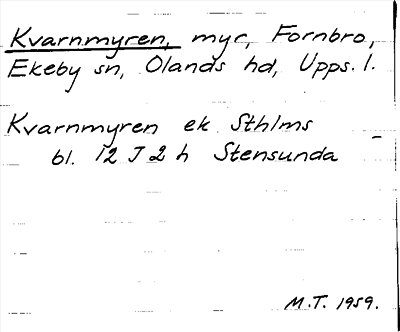 Kvarnmyren, myr, Fornbro,
Ekeby sn, Olands hd, Upps. l.
Kvarnmyren ek Sthlms
bl. 12 J 2 h Stensunda
M.T. 1959.